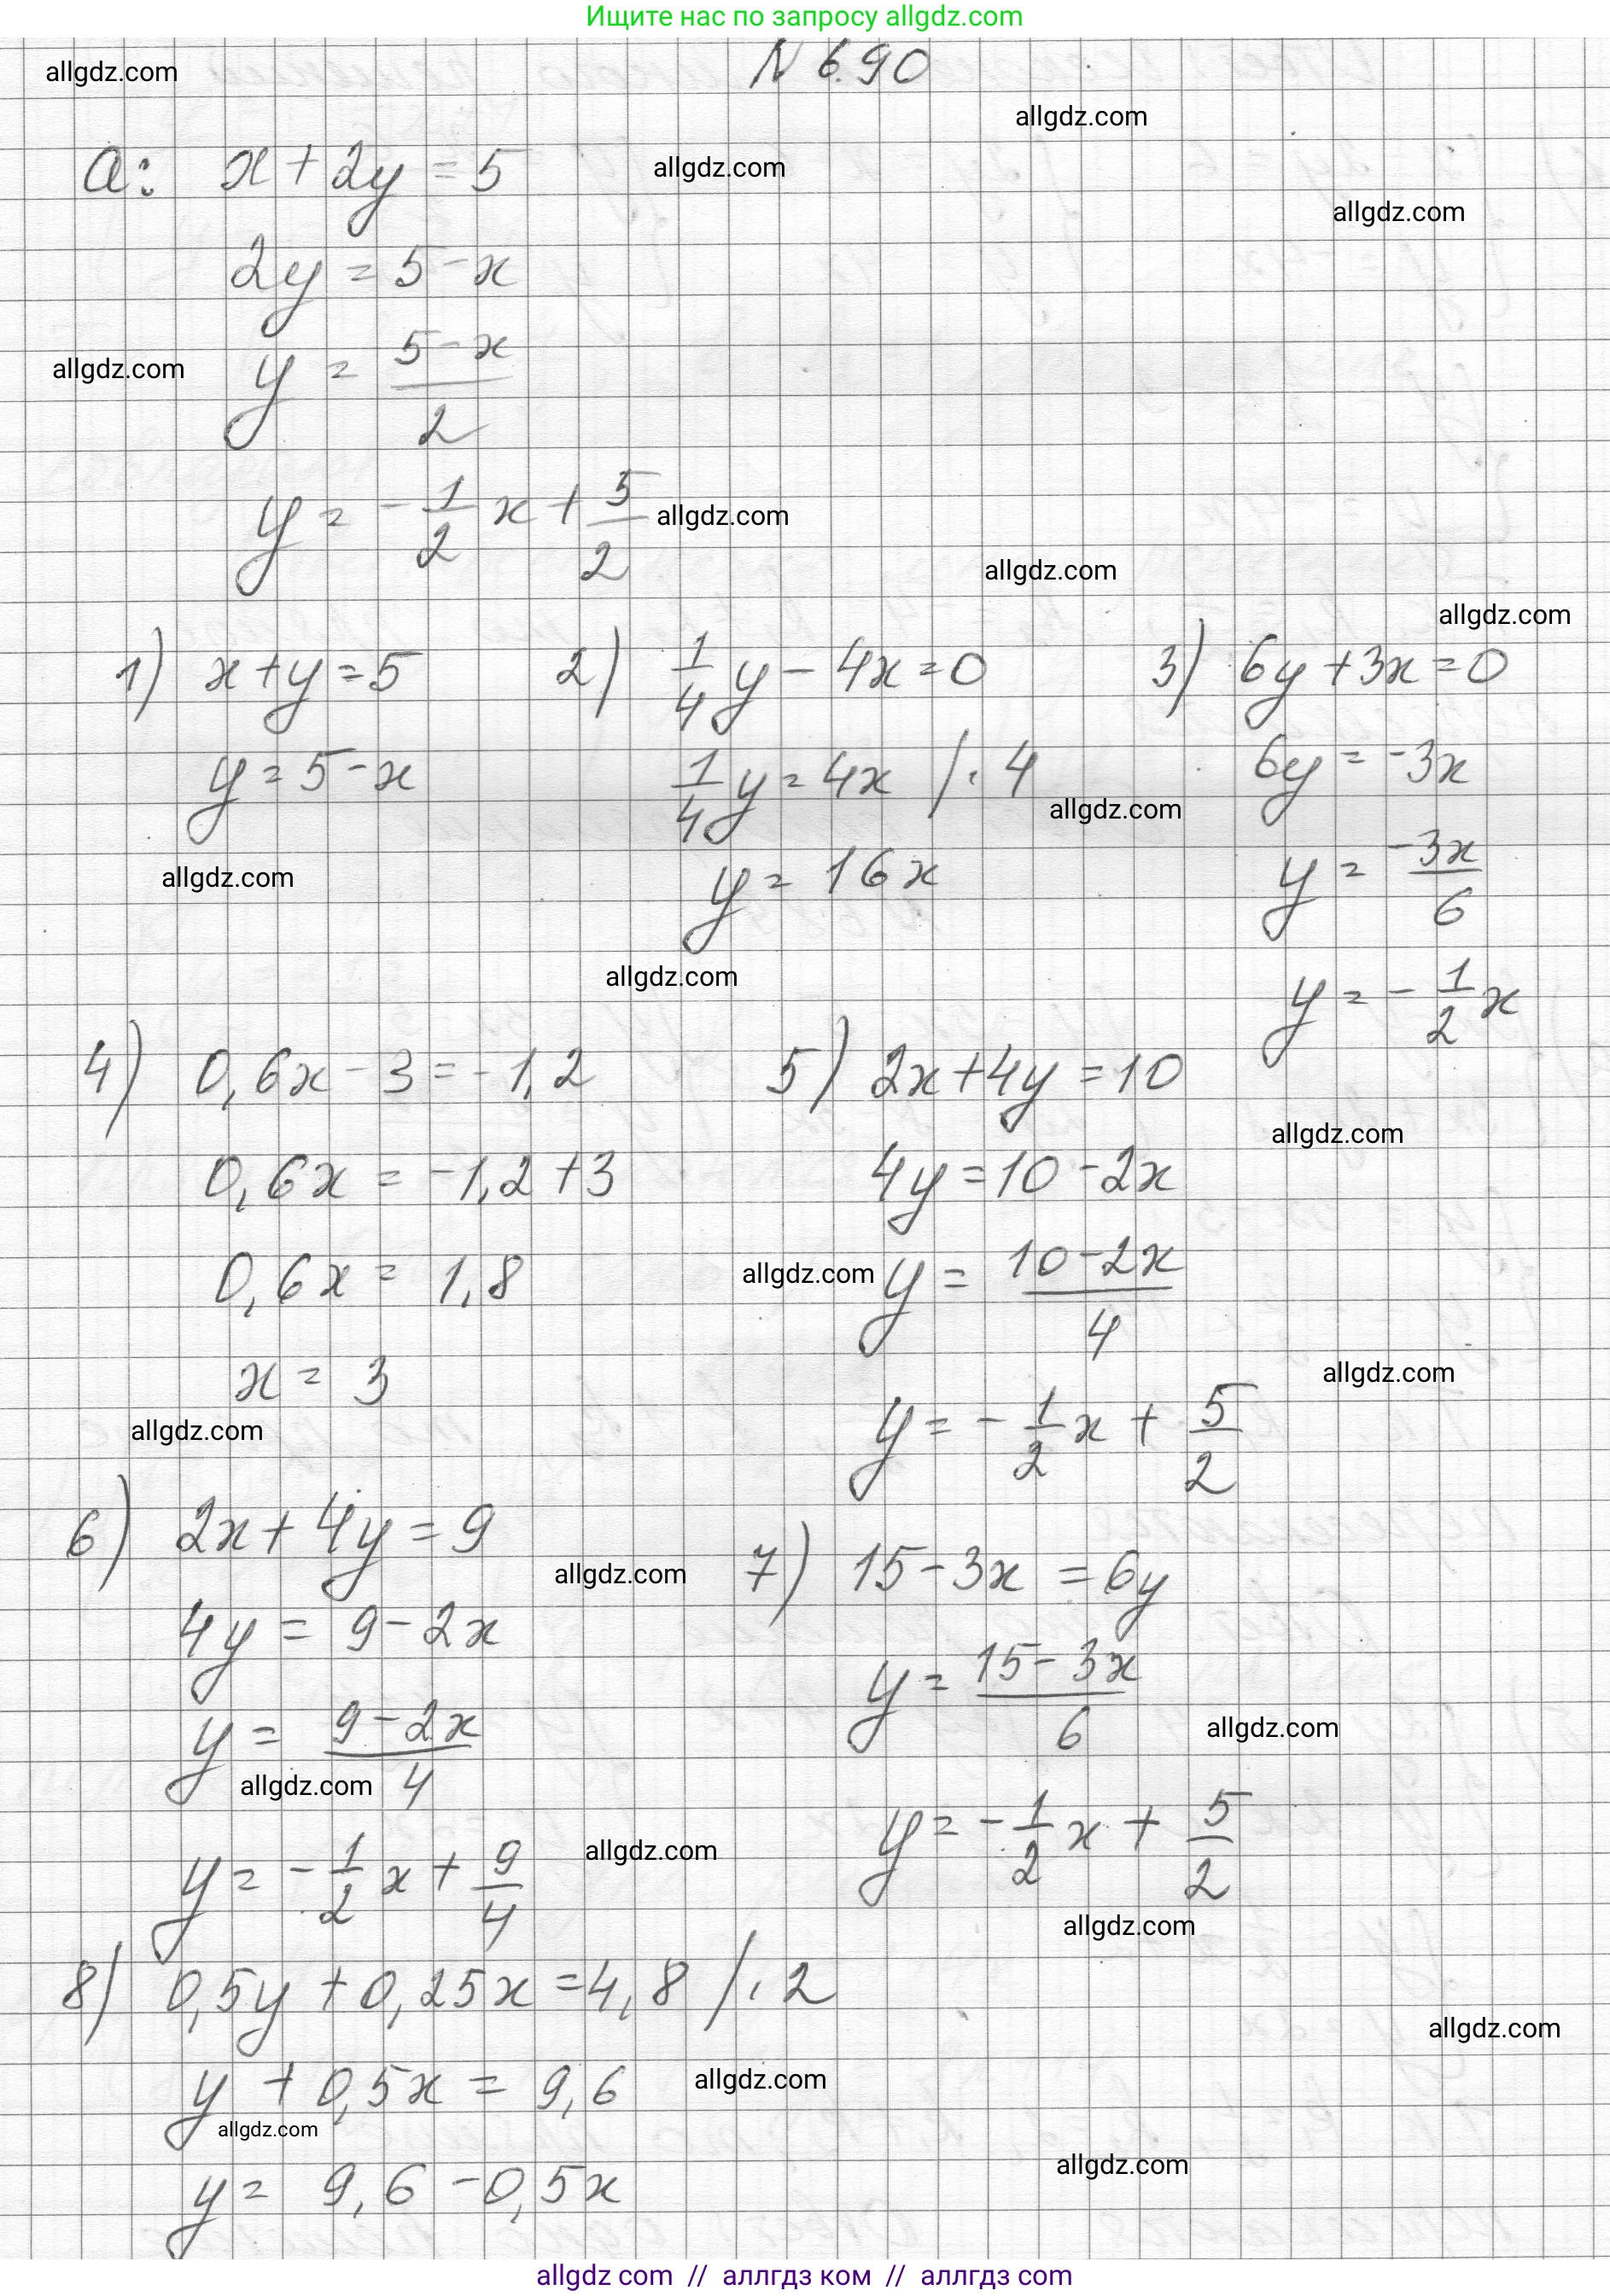 Ищите нас по запросу allgdz.com
N 6.90
allgdz.com
allgdz.com
a: x + 2y = 5
allgdz.com
allgdz.com
2y = 5 - x
y = \frac{5 - x}{2}
allgdz.com
y = -\frac{1}{2}x + \frac{5}{2}
allgdz.com
allgdz.com
allgdz.com
1) x + y = 5
y = 5 - x
allgdz.com
2) \frac{1}{4}y - 4x = 0
\frac{1}{4}y = 4x /· 4
allgdz.com
y = 16x
allgdz.com
3) 6y + 3x = 0
6y = -3x
y = \frac{-3x}{6}
y = -\frac{1}{2}x
4) 0,6x - 3 = -1,2
0,6x = -1,2 + 3
0,6x = 1,8
x = 3
allgdz.com
5) 2x + 4y = 10
allgdz.com
4y = 10 - 2x
allgdz.com
y = \frac{10 - 2x}{4}
allgdz.com
y = -\frac{1}{2}x + \frac{5}{2}
6) 2x + 4y = 9
allgdz.com
4y = 9 - 2x
y = \frac{9 - 2x}{4}
allgdz.com
y = -\frac{1}{2}x + \frac{9}{4}
allgdz.com
7) 15 - 3x = 6y
y = \frac{15 - 3x}{6}
allgdz.com
y = -\frac{1}{2}x + \frac{5}{2}
allgdz.com
8) 0,5y + 0,25x = 4,8 /· 2
allgdz.com
y + 0,5x = 9,6
allgdz.com
allgdz.com
y = 9,6 - 0,5x
allgdz.com
allgdz com // аллгдз ком // аллгдз com